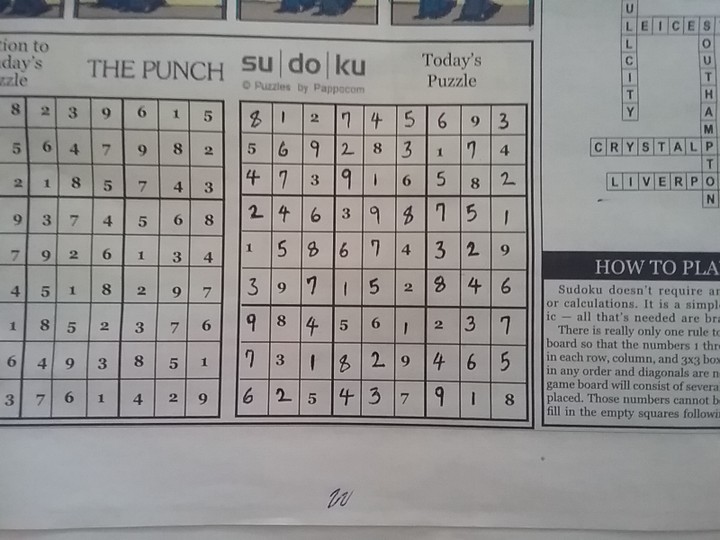 tion to
day's
zzle
THE PUNCH
8 2 3 9 6 1 5
5 6 4 7 9 8 2
2 1 8 5 7 4 3
9 3 7 4 5 6 8
7 9 2 6 1 3 4
4 5 1 8 2 9 7
1 8 5 2 3 7 6
6 4 9 3 8 5 1
3 7 6 1 4 2 9
su|do|ku
© Puzzles by Pappocom
Today's
Puzzle
8 1 2 7 4 5 6 9 3
5 6 9 2 8 3 1 7 4
4 7 3 9 1 6 5 8 2
2 4 6 3 9 8 7 5 1
1 5 8 6 7 4 3 2 9
3 9 7 1 5 2 8 4 6
9 8 4 5 6 1 2 3 7
7 3 1 8 2 9 4 6 5
6 2 5 4 3 7 9 1 8
U
LEICES
L
CITY
SOUTHAMPTON
CRYSTALP
LIVERPO
HOW TO PLA
Sudoku doesn't require ar
or calculations. It is a simpl
ic — all that's needed are bra
There is really only one rule to
board so that the numbers 1 thr
in each row, column, and 3x3 box
in any order and diagonals are n
game board will consist of severa
placed. Those numbers cannot b
fill in the empty squares followi